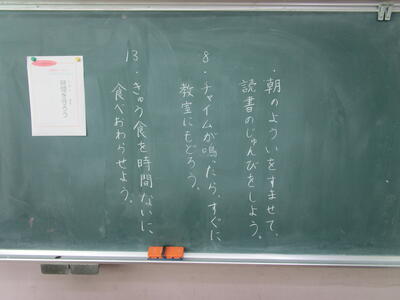 ・朝のよういをすませて、
読書のじゅんびをしよう。
8・チャイムが鳴ったら、すぐに
教室にもどろう。
13・きゅう食を時間ないに、
食べおわらせよう。
時間を守ろう